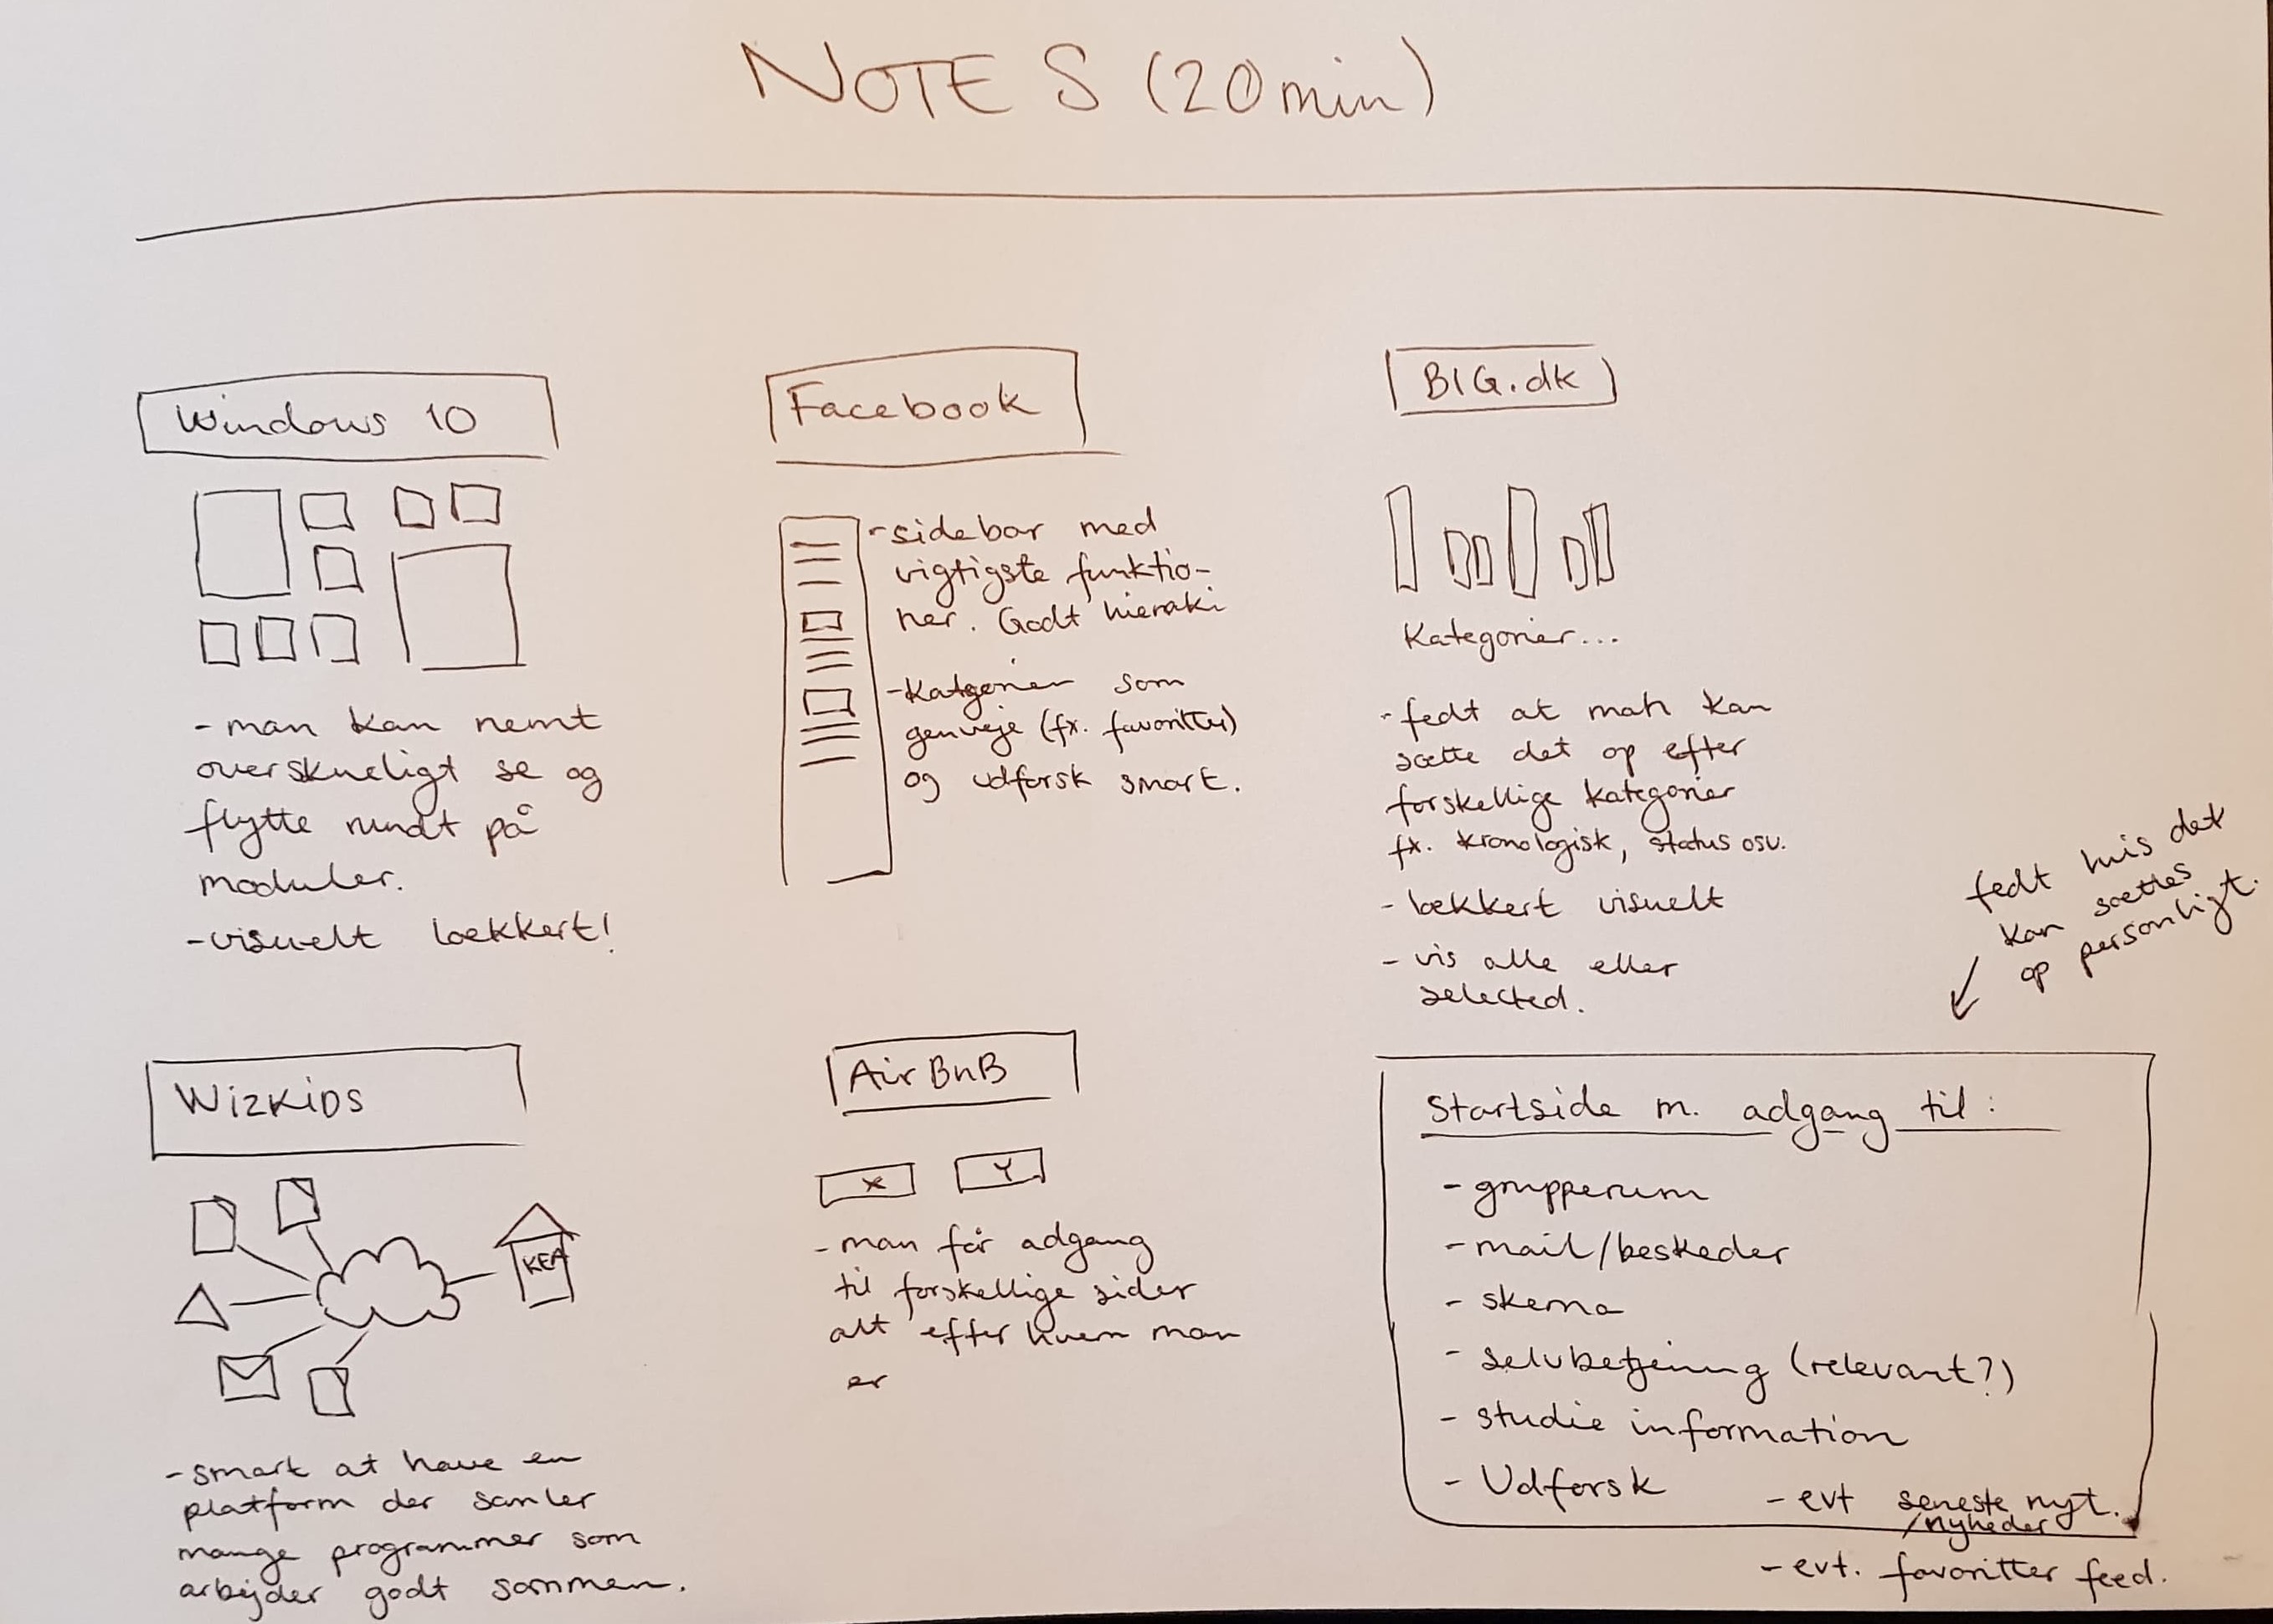 NOTES (20min)
Windows 10
- man kan nemt
overskueligt se og
flytte rundt på
moduler.
- visuelt lækkert!
Facebook
- sidebar med
vigtigste funktio-
ner. Godt hieraki
- Katgorier som
genveje (fx. favoritter)
og udforsk smart.
BIG.dk
Kategorier...
- fedt at man kan
sætte det op efter
forskellige kategorier
fx. kronologisk, status osv.
- lækkert visuelt
- vis alle eller
selected.
WIZKIDS
KEA
- smart at have en
platform der samler
mange programmer som
arbejder godt sammen.
AirBnB
X Y
- man får adgang
til forskellige sider
alt efter hvem man
er
fedt hvis det
kan sættes
op personligt.
Startside m. adgang til:
- grupperum
- mail/beskeder
- skema
- selvbetjening (relevant?)
- studie information
- Udforsk
- evt seneste nyt.
/nyheder
- evt. favoritter feed.